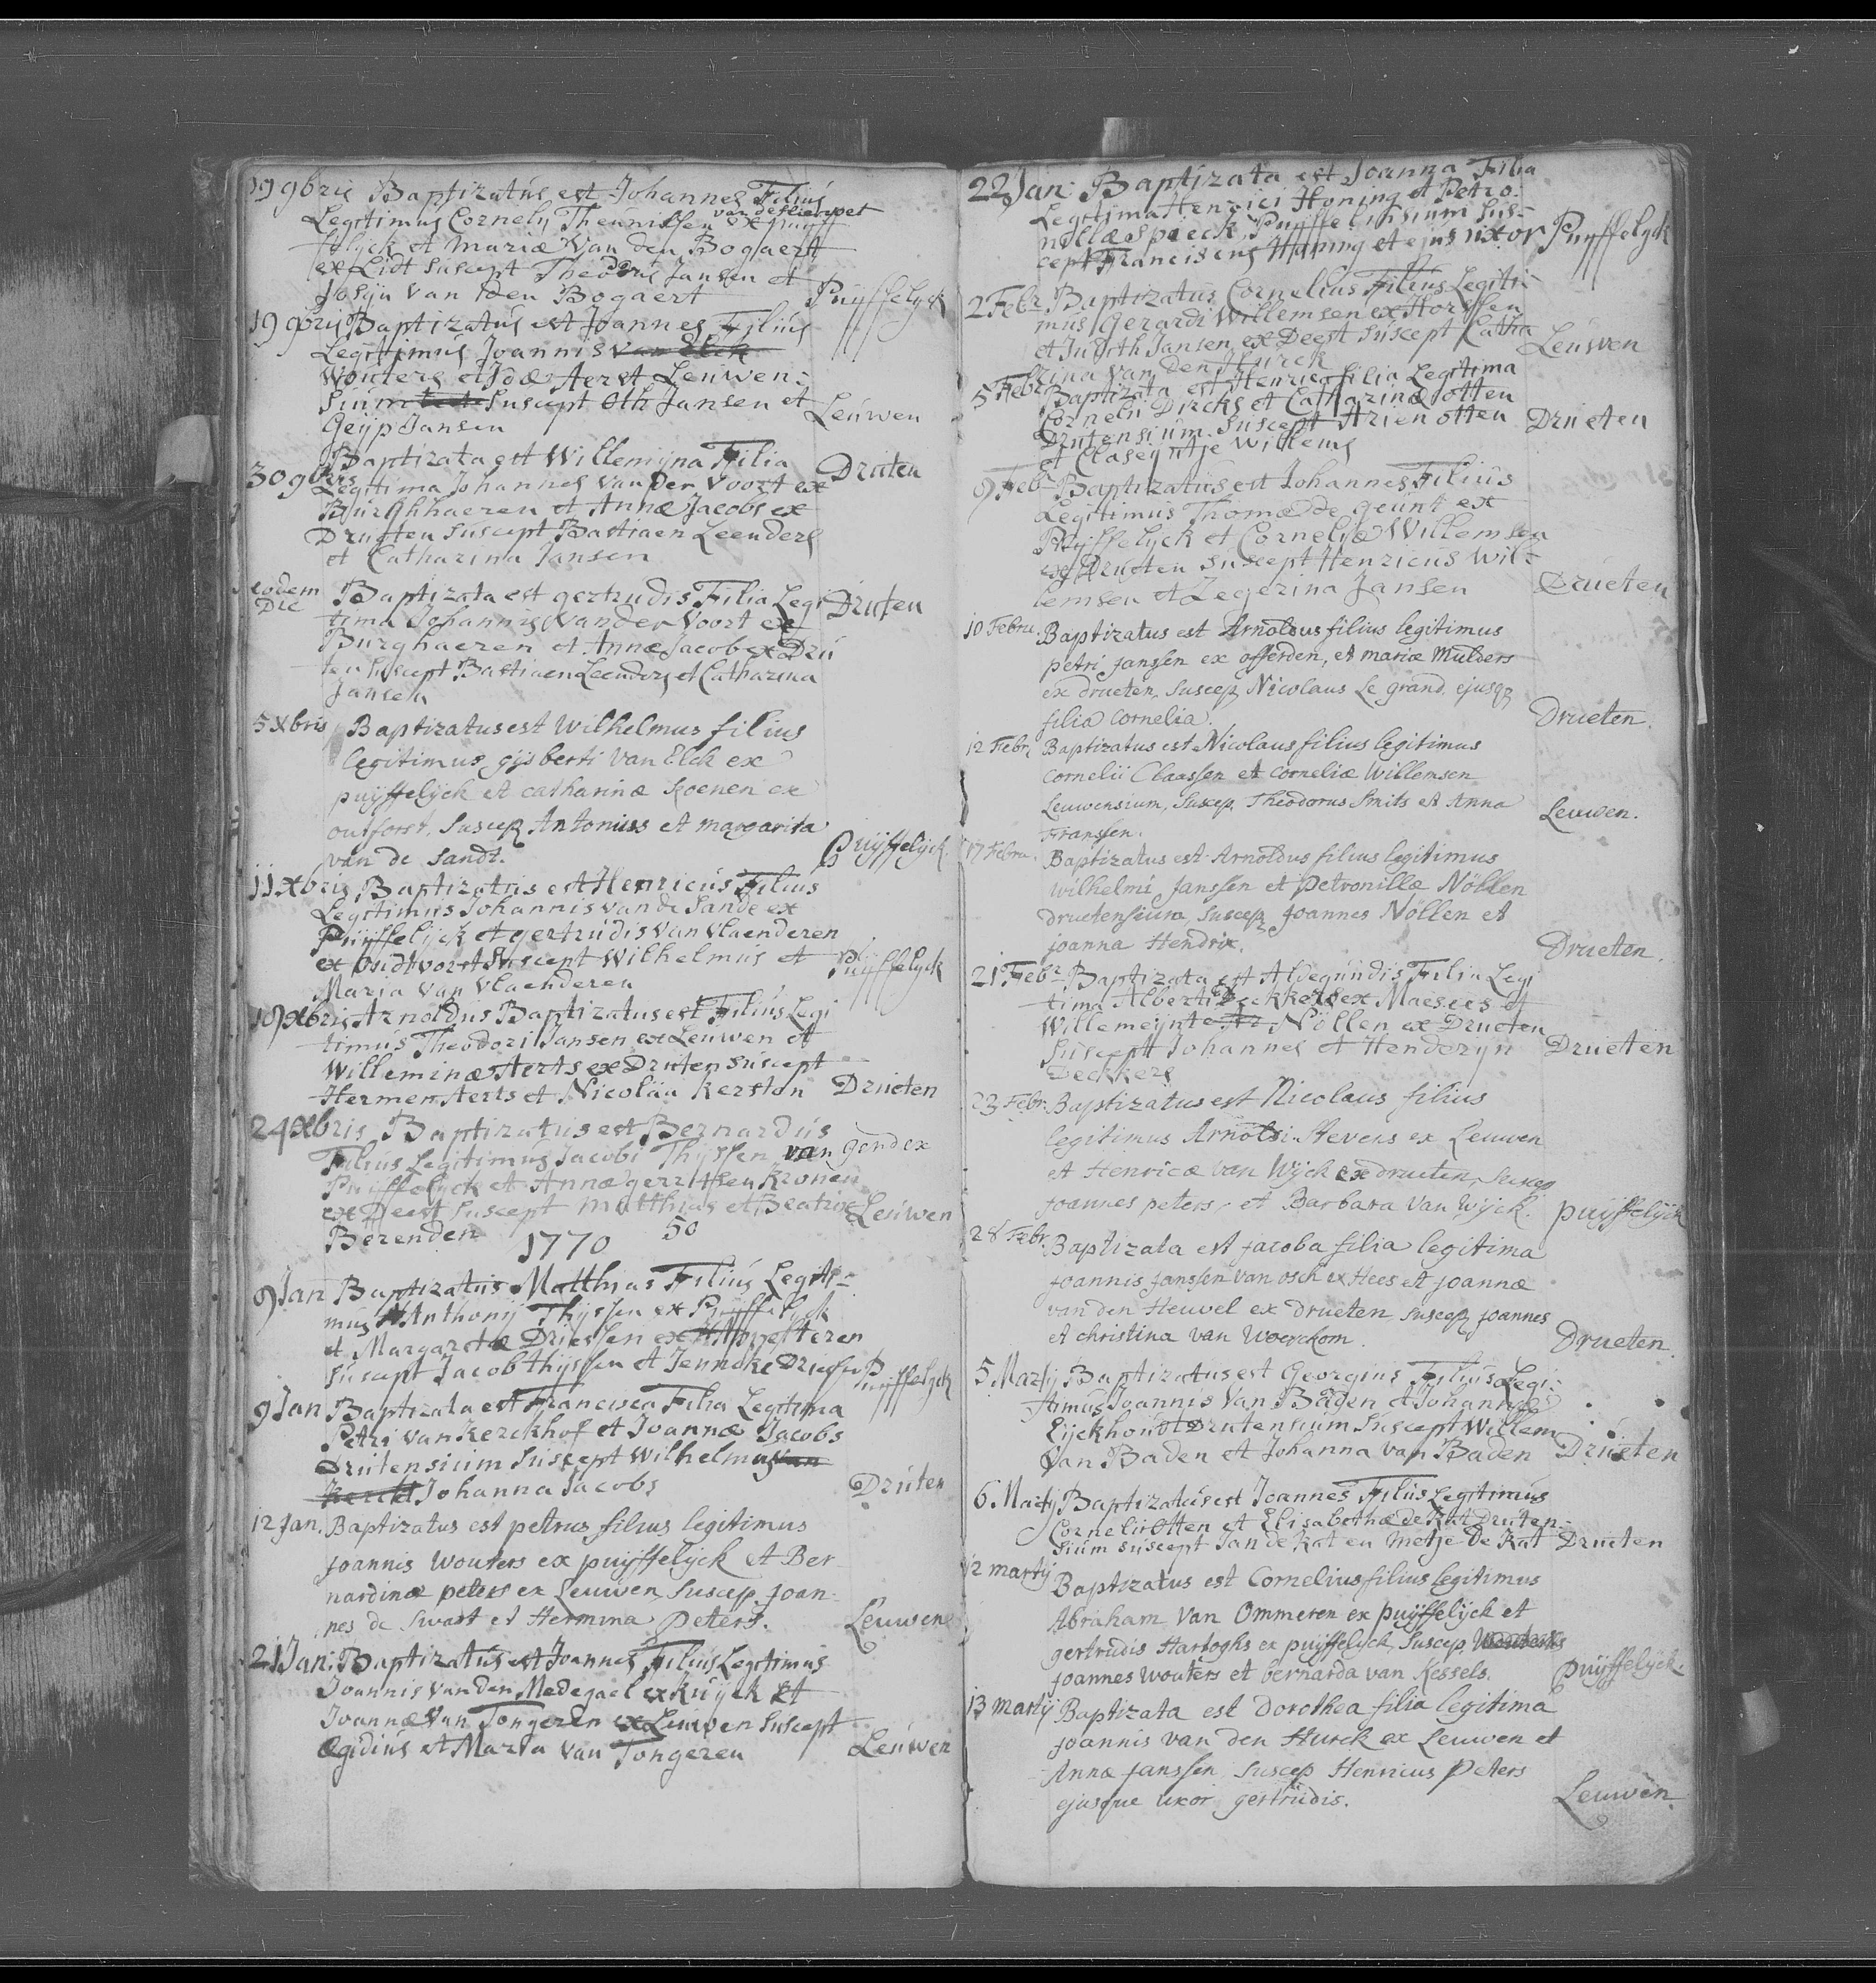 19 9bris Baptizatus est Johannes Filius
Legitimus Cornely Theunissen ex puijf
felijck et Mariæ Van den Bogaert
ex Lidt suscept Theodrus Jansen et
Josijn van den Bogaert Puijffelijck
19 9bris Baptizatus est Joannes Filius
Legitimus Joannis van Elck
Wouters et Idæ Aerst Leuwen-
sium suscept Oth Jansen et Leuwen
Geijp Jansen
30 9bris Baptizata est Willemijna Filia Druten
Legitima Johannes van der Voort ex
Burghhaeren et Annæ Jacobs ex
Drueten suscept Bastiaen Leenders
et Catharina Jansen
eodem Die Baptizata est gertrudis Filia Legi Druten
tima Johannis Van der Voort ex
Burghaeren et Annæ Jacobs ex Dru
ten suscept Bastiaen Leenders et Catharina
Jansen
5 Xbris Baptizatus est Wilhelmus filius
legitimus gijsberti van Elck ex
puijffelijck et catharinæ Koenen ex
outforst, suscep Antonius et margarita
van de Sandt. puijffelijck
11 Xbris Baptizatus est Henricus Filius
Legitimus Johannis van de Sande ex
Puijffelijck et gertrudis van Vlaenderen
ex Ouidtvorst suscept Wilhelmus et Puijffelijck
Maria van Vlaenderen
19 Xbris Arnoldus Baptizatus est Filius Legi
timus Theodori Jansen ex Leuwen et
Willeminæ Aerts ex Druten suscept
Hermen Aerts et Nicoläa Kersten Drueten
24 Xbris Baptizatus est Bernardus
Filius Legitimus Jacobi Thijssen van gend ex
Puijffelijck et Annæ gerritsen Kronen
ex Deest suscept Matthias et Beatrix Leuwen
Berenden
1770 50
9 Jan Baptizatus Matthias Filius Legiti-
mus Anthonij Thijssen ex Puijffelijck
et Margaretæ Driessen ex
suscept Jacob thijssen et Jenneke Driessen Puijffelijck
9 Jan Baptizata est Francisca Filia Legitima
Petri van Kerckhof et Joannæ Jacobs
Drutensium suscept Wilhelmus van
Kerckh Johanna Jacobs Druten
12 Jan. Baptizatus est petrus filius legitimus
joannis wouters ex puijffelijck et Ber-
nardinæ peters ex Leuwen, suscep. joan-
nes de Swart et Hermina peters. Leuwen
21 Jan: Baptizatus est Joannes Filius Legitimus
Joannis van den Medegael ex kuijck et
Joannæ Van Tongeren ex Leuwen suscept
Egidius et Maria van Tongeren Leuwen
22 Jan: Baptizata est Joanna Filia
Legitima Henrici Honing et Petro-
nillæ Spieck Puijffelicksium sus-
cept Franciscus Honing et ejus uxor Puijffelijck
2 Febr Baptizatus Cornelius Filius Legiti-
mus Gerardi Willemsen ex Horssen
et Judith Jansen ex Deest suscept Catha Leuwen
rina van den Hurck
5 Febr Baptizata est Henrica filia Legitima
Cornelii Dircks et Catharinæ otten
Drutensium suscept Arien otten Drueten
et Claseyntje Willems
9 Febr Baptizatus est Johannes Filius
Legitimus Thomæ de geunt ex
Puijffelijck et Cornelyæ Willemsen
ex Drueten suscept Henricus Wil-
lemsen et Zegerina Jansen Drueten
10 Febru. Baptizatus est Arnoldus filius legitimus
petri janssen ex afferden, et mariæ Mulders
ex drueten, suscep. Nicolaus Le grand, ejusq
filia cornelia. Drueten.
12 Febr. Baptizatus est Nicolaus filius legitimus
cornelii Claassen et corneliæ Willemsen
Leuwensium, suscep. Theodorus Smits et Anna Leuwen.
Franssen.
17 Febru. Baptizatus est Arnoldus filius legitimus
wilhelmi janssen et petronillæ Nöllen
druetensium suscep joannes Nöllen et
joanna Hendrix. Drueten.
21 Febr Baptizata est Aldegundis Filia Legi
tima Alberti Deckkers ex Maesees et
Willemeijnte Nöllen ex Drueten
suscept Johannes et Henderijn Drueten
Deckkers
23 Febr. Baptizatus est Nicolaus filius
legitimus Arnoldi Stevens ex Leuwen
et Henricæ van Wijck ex drueten, suscep
joannes peters et Barbara van wijck. puijffelijck
28 Febr. Baptizata est jacoba filia legitima
joannis janssen van osch ex Hees et joannæ
van den Heuvel ex drueten, suscep joannes
et christina van Woerckom. Drueten.
5 Martij Baptizatus est Georgius Filius Legi-
timus Joannis Van Baden et Johannæ
Eijckhout Drutensium suscept Willem
Van Baden et Johanna van Baden Drueten
6 Martij Baptizatus est Joannes Filius Legitimus
Cornelii Otten et Elisabethæ de Kat Druten-
sium suscept Jan de Kat en Metje de Kat Drueten
12 martij Baptizatus est Cornelius filius legitimus
Abraham van Ommeren ex puijffelijck et
gertrudis Hartoghs ex puijffelijck, suscep.
joannes wouters et bernarda van Kessels. puijffelijck.
13 martij Baptizata est Dorothea filia legitima
joannis van den Hurck ex Leuwen et
Annæ janssen, suscep Henricus peters
ejusque uxor gertrudis. Leuwen.